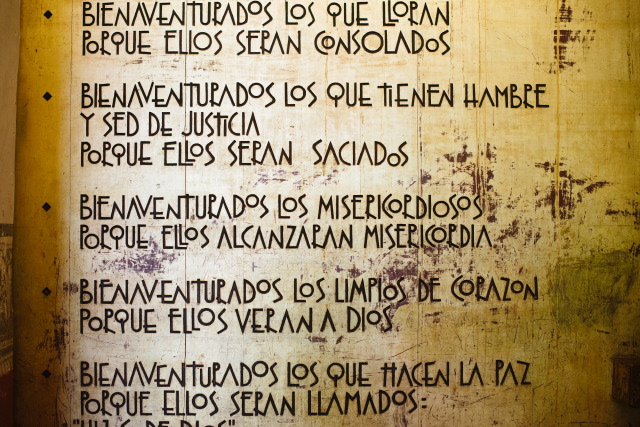 BIENAVENTURADOS LOS QUE LLORAN
PORQUE ELLOS SERAN CONSOLADOS
BIENAVENTURADOS LOS QUE TIENEN HAMBRE
Y SED DE JUSTICIA
PORQUE ELLOS SERAN SACIADOS
BIENAVENTURADOS LOS MISERICORDIOSOS
PORQUE ELLOS ALCANZARAN MISERICORDIA
BIENAVENTURADOS LOS LIMPIOS DE CORAZON
PORQUE ELLOS VERAN A DIOS
BIENAVENTURADOS LOS QUE HACEN LA PAZ
PORQUE ELLOS SERAN LLAMADOS:
"HIJOS DE DIOS"